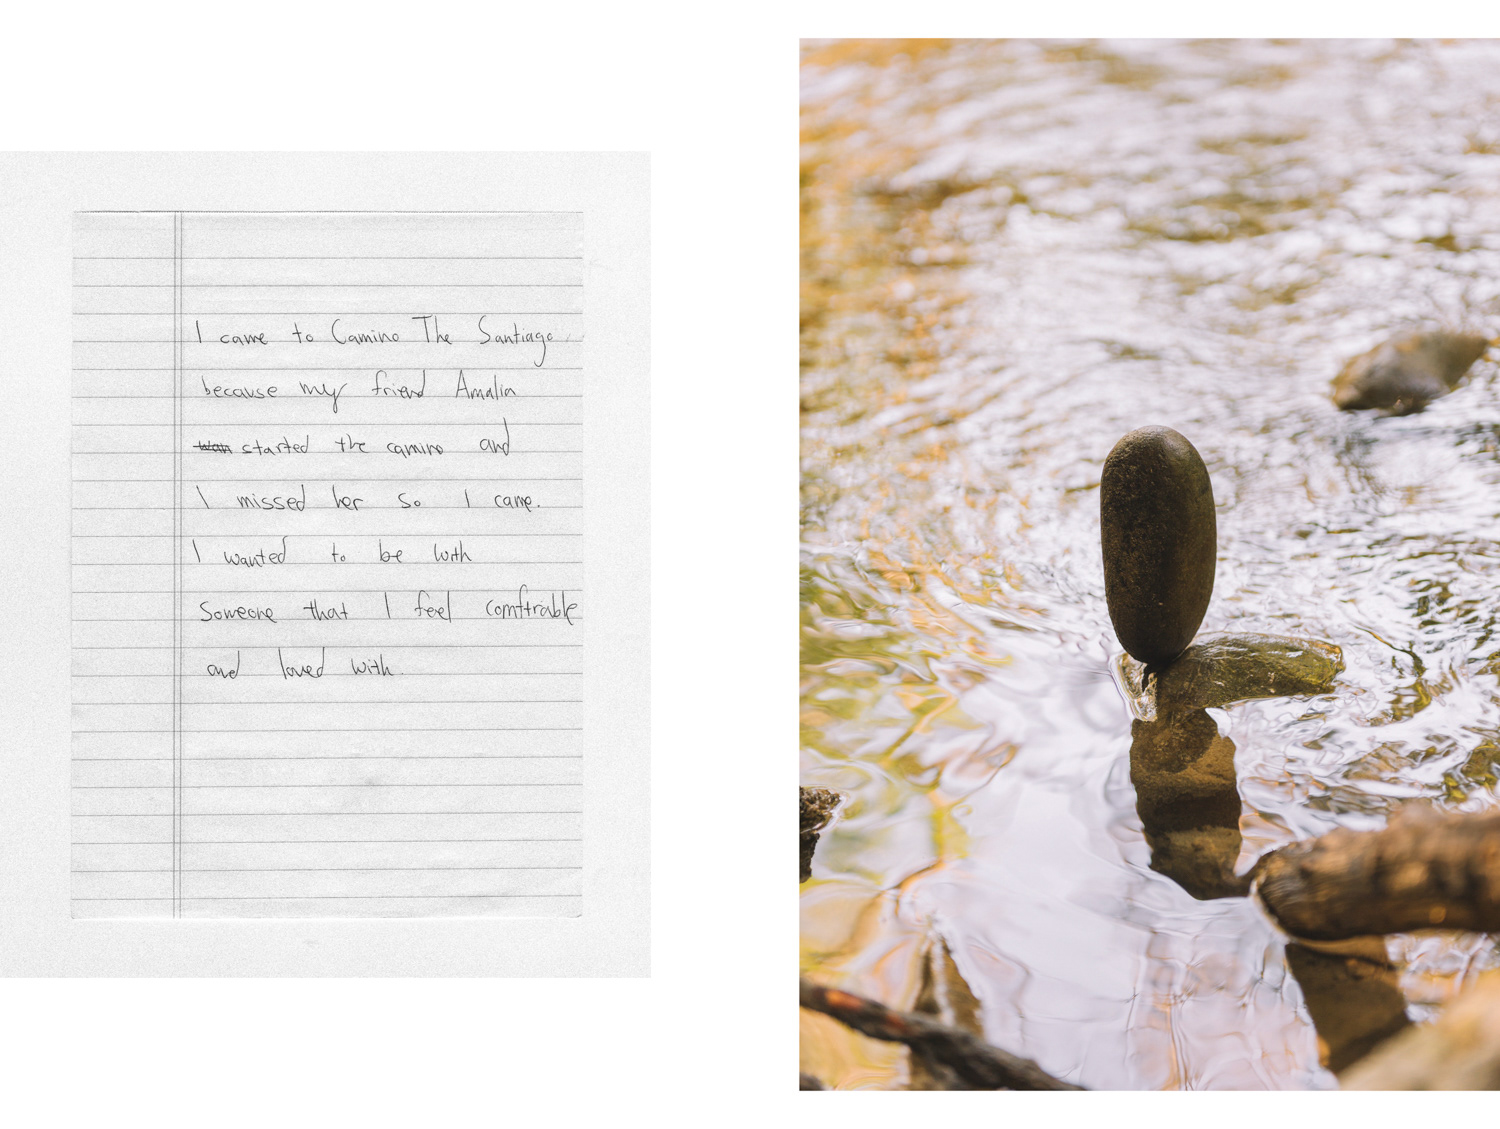 I came to Camino The Santiago
because my friend Amalia
started the camino and
I missed her so I came.
I wanted to be with
Someone that I feel comftrable
and loved with.